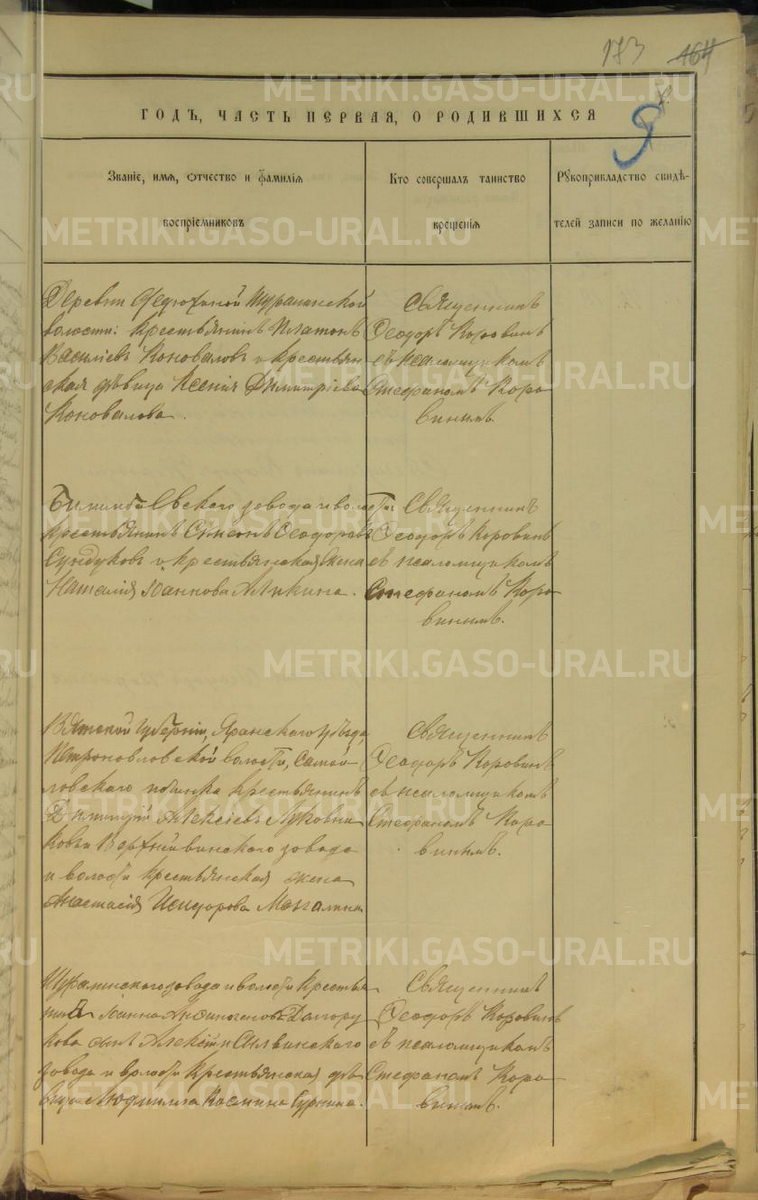 173 164
9
ГОДЪ, ЧАСТЬ ПЕРВАЯ, О РОДИВШИХСЯ
Званіе, имя, отчество и фамилія
воспріемниковъ
Кто совершалъ таинство
крещенія
Рукоприкладство свидѣ-
телей записи по желанію
Деревни
волости: Крестьянинъ Платонъ
Василіевъ Коноваловъ и крестьян
ская дѣвица Ксенія Димитріева
Коновалова.
Священникъ
Ѳеодоръ Коровинъ
съ псаломщикомъ
Стефаномъ Коро
винымъ.
завода и волости
крестьянинъ Симеонъ Ѳеодоровъ
Сундуковъ и крестьянская жена
Наталія Іоаннова Аликина.
Священникъ
Ѳеодоръ Коровинъ
съ псаломщикомъ
Стефаномъ Коро
винымъ.
Вятской губерніи, Яранскаго уѣзда,
Петропавловской волости,
ловскаго починка крестьянинъ
Димитрій Алексіевъ
завода
и волости крестьянская жена
Анастасія Исидорова
Священникъ
Ѳеодоръ Коровинъ
съ псаломщикомъ
Стефаномъ Коро
винымъ.
завода и волости крестья
нина Іоанна
кова сынъ Алексій и Сылвинскаго
завода и волости крестьянская дѣ
вица Людмилла Космина
Священникъ
Ѳеодоръ Коровинъ
съ псаломщикомъ
Стефаномъ Коро
винымъ.
METRIKI.GASO-URAL.RU